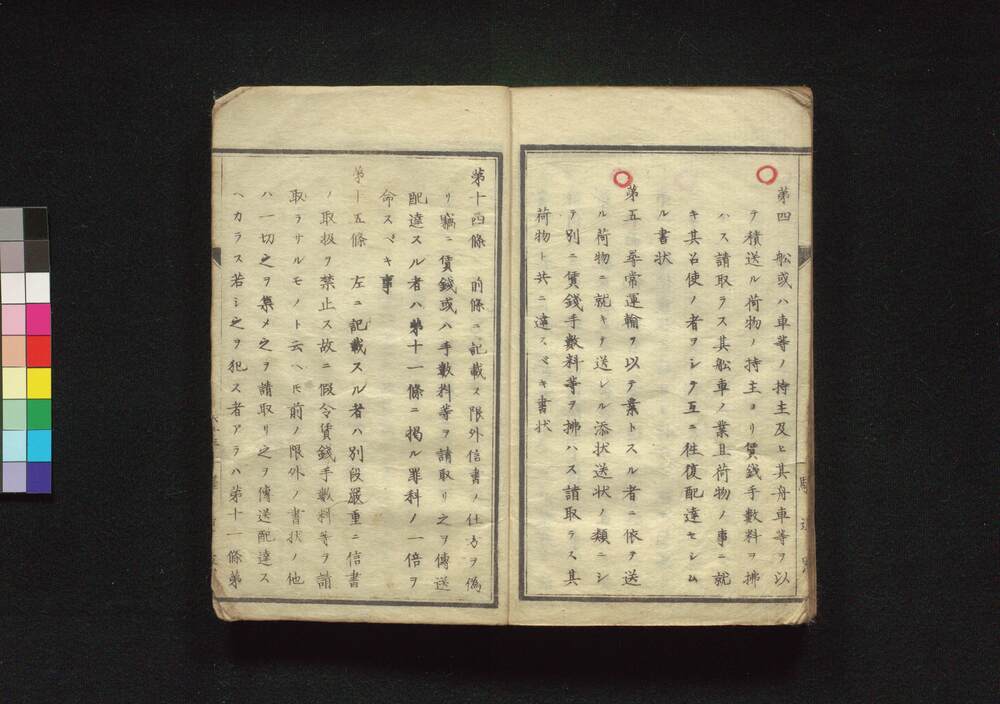 第四 舩或ハ車等ノ持主及ヒ其舟車等ヲ以
テ積送ル荷物ノ持主ヨリ賃錢手數料ヲ拂
ハス請取ラス其舩車ノ業且荷物ノ事ニ就
キ其召使ノ者ヲシテ互ニ往復配達セシム
ル書状
第五 尋常運輸ヲ以テ業トスル者ニ依テ送
ル荷物ニ就キテ送レル添状送状ノ類ニシ
テ別ニ賃錢手數料等ヲ拂ハス請取ラス其
荷物ト共ニ達スベキ書状
第十四條 前條ニ記載ス限外信書ノ仕方ヲ偽
リ竊ニ賃錢或ハ手數料等ヲ請取リ之ヲ傳送
配達スル者ハ第十一條ニ掲ル罪科ノ一倍ヲ
命スベキ事
第十五條 左ニ記載スル者ハ別段嚴重ニ信書
ノ取扱ヲ禁止ス故ニ假令賃錢手數料等ヲ請
取ラサルモノト云ヘ𪜈前ノ限外ノ書状ノ他
ハ一切之ヲ集メ之ヲ請取リ之ヲ傳送配達ス
ヘカラス若シ之ヲ犯ス者アラハ第十一條第